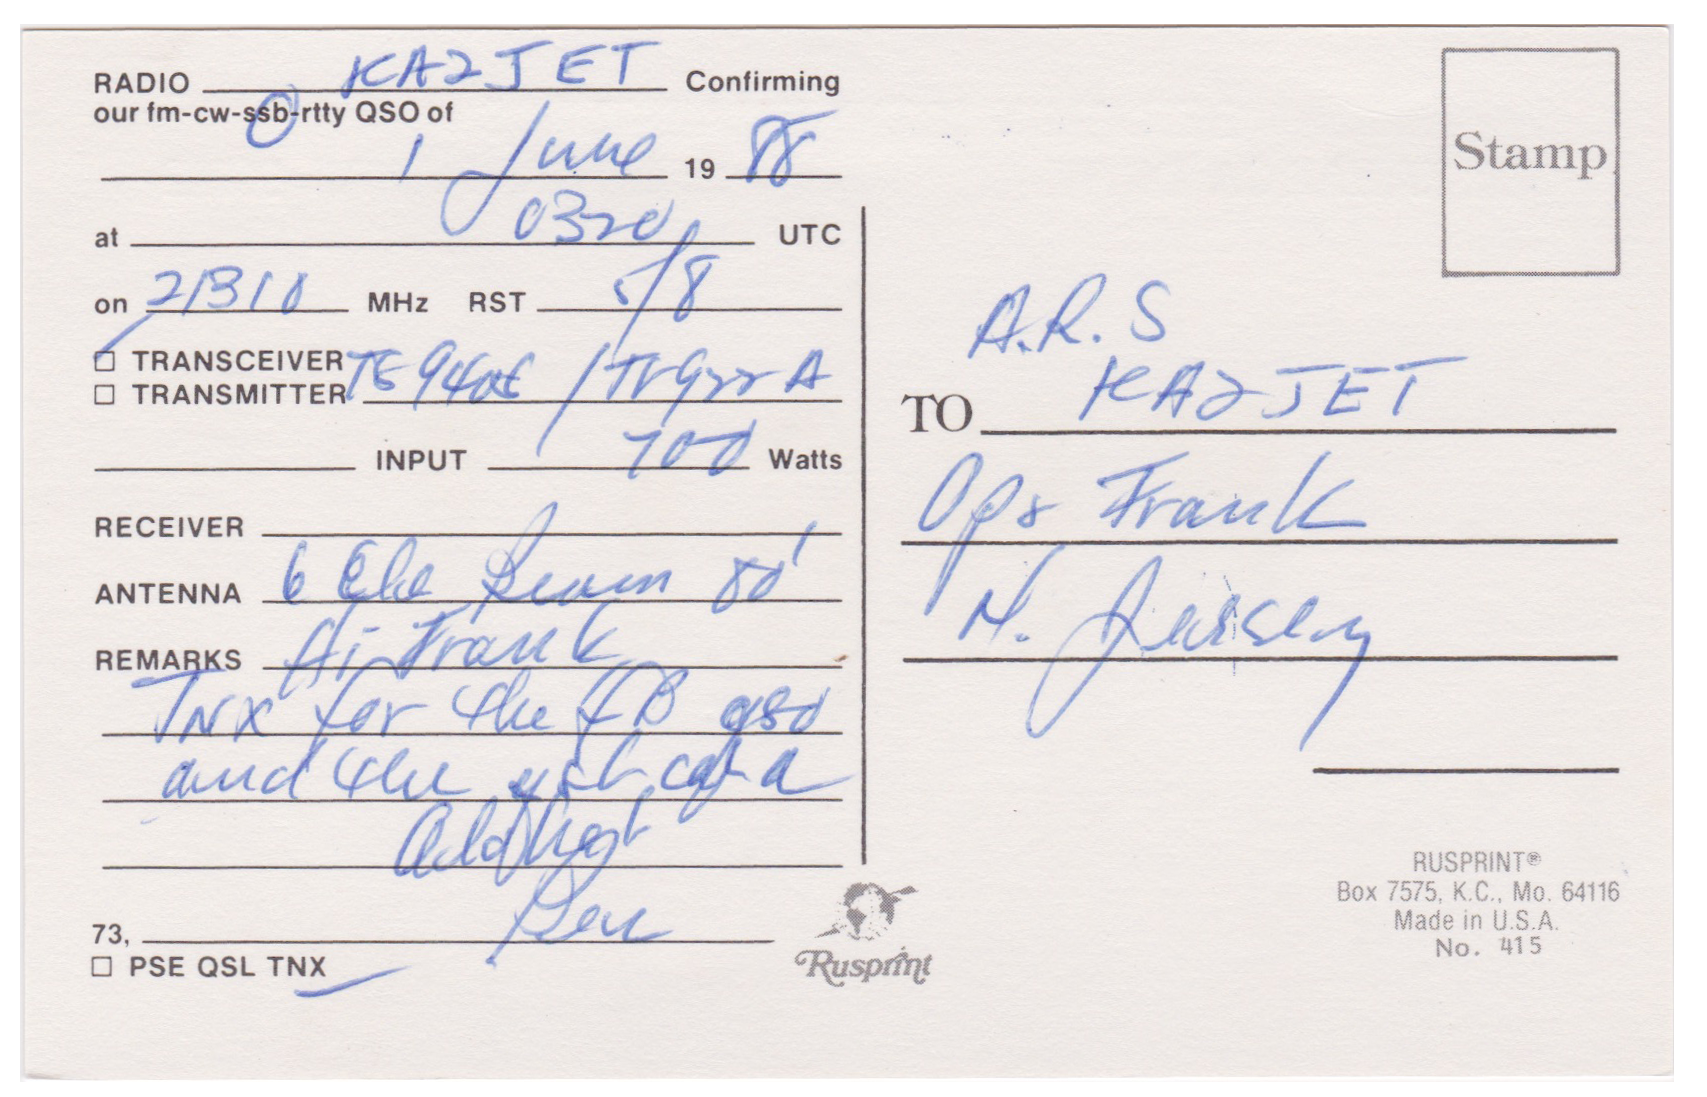 RADIO KA2JET Confirming
our fm-cw-ssb-rtty QSO of
1 June 19 88
at 0320 UTC
on 21310 MHz RST 5/8
☐ TRANSCEIVER
☐ TRANSMITTER TS940S / TL922A
INPUT 700 Watts
RECEIVER
ANTENNA 6 Ele Beam 80'
REMARKS Hi Frank
TNX for the FB qso
and the
73, Ben
☐ PSE QSL TNX
Rusprint
Stamp
A.R.S
TO KA2JET
Ops Frank
N. Jersey
RUSPRINT®
Box 7575, K.C., Mo. 64116
Made in U.S.A.
No. 415